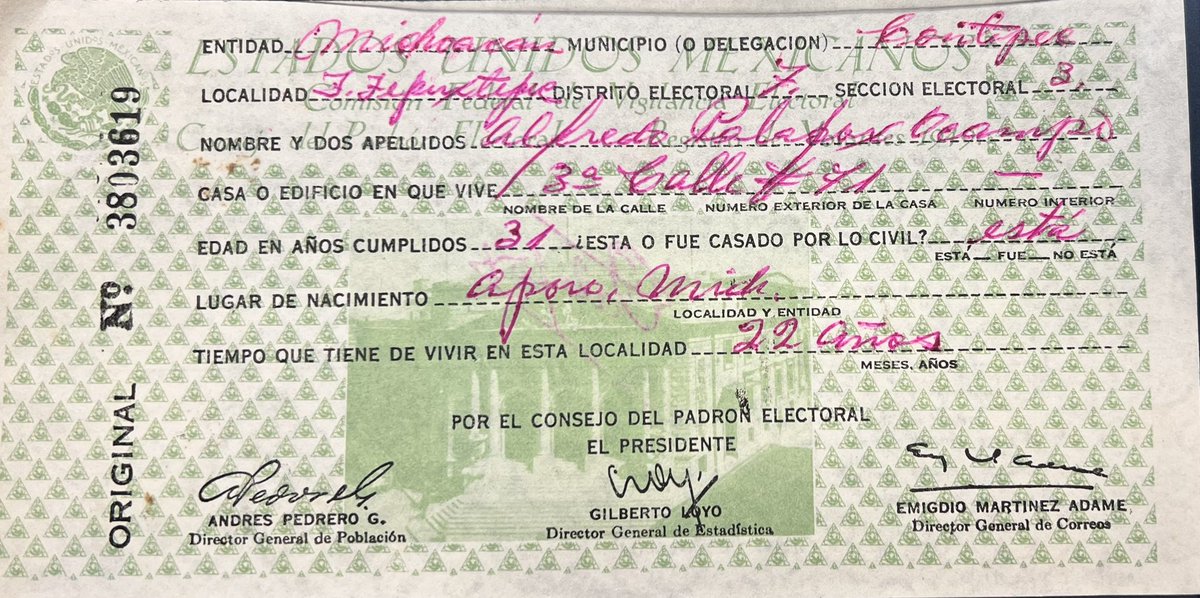 ESTADOS UNIDOS MEXICANOS
ENTIDAD Michoacán MUNICIPIO (O DELEGACION) Contepec
LOCALIDAD F. Tepuxtepec DISTRITO ELECTORAL 7. SECCION ELECTORAL 3.
Comisión Federal de Vigilancia Electoral
NOMBRE Y DOS APELLIDOS Alfredo Palafox Ocampo
CASA O EDIFICIO EN QUE VIVE 3a Calle # 71 —
NOMBRE DE LA CALLE NUMERO EXTERIOR DE LA CASA NUMERO INTERIOR
EDAD EN AÑOS CUMPLIDOS 31 ¿ESTA O FUE CASADO POR LO CIVIL? está
ESTÁ FUE NO ESTÁ
LUGAR DE NACIMIENTO Aporo, Mich.
LOCALIDAD Y ENTIDAD
TIEMPO QUE TIENE DE VIVIR EN ESTA LOCALIDAD 22 Años
MESES, AÑOS
POR EL CONSEJO DEL PADRON ELECTORAL
EL PRESIDENTE
ANDRES PEDRERO G.
Director General de Población
GILBERTO LOYO
Director General de Estadística
EMIGDIO MARTINEZ ADAME
Director General de Correos
ORIGINAL Nº. 3803619